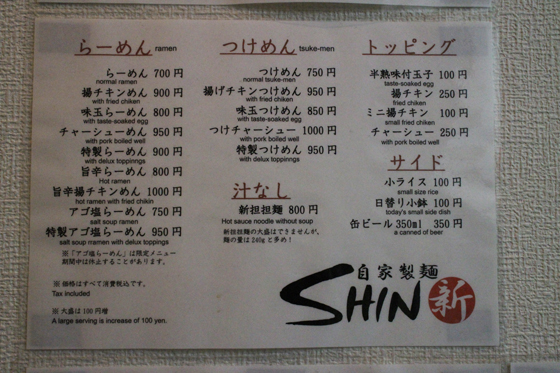 らーめん ramen
らーめん 700円
normal ramen
揚チキンめん 900円
with fried chiken
味玉らーめん 800円
with taste-soaked egg
チャーシューめん 950円
with pork boiled well
特製らーめん 900円
with delux toppinngs
旨辛らーめん 800円
Hot ramen
旨辛揚チキンめん 1000円
hot ramen with fried chikin
アゴ塩らーめん 750円
salt soup ramen
特製アゴ塩らーめん 950円
salt soup rnamen with delux toppings
※「アゴ塩らーめん」は限定メニュー
期間中は休止することがあります。
※価格はすべて消費税込です。
Tax included
※大盛は100円増
A large serving is increase of 100 yen.
つけめん tsuke-men
つけめん 750円
normal tsuke-men
揚げチキンつけめん 950円
with fried chicken
味玉つけめん 850円
with taste-soaked egg
つけチャーシュー 1000円
with pork boiled well
特製つけめん 950円
with delux toppinngs
汁なし
新担担麺 800円
Hot sauce noodle without soup
新担担麺の大盛はできませんが、
麺の量は240gと多め!
トッピング
半熟味付玉子 100円
taste-soaked egg
揚チキン 250円
fried chiken
ミニ揚チキン 100円
small fried chiken
チャーシュー 250円
with pork boiled well
サイド
小ライス 100円
small size rice
日替り小鉢 100円
today's small side dish
缶ビール350ml 350円
a canned of beer
自家製麺
SHIN 新